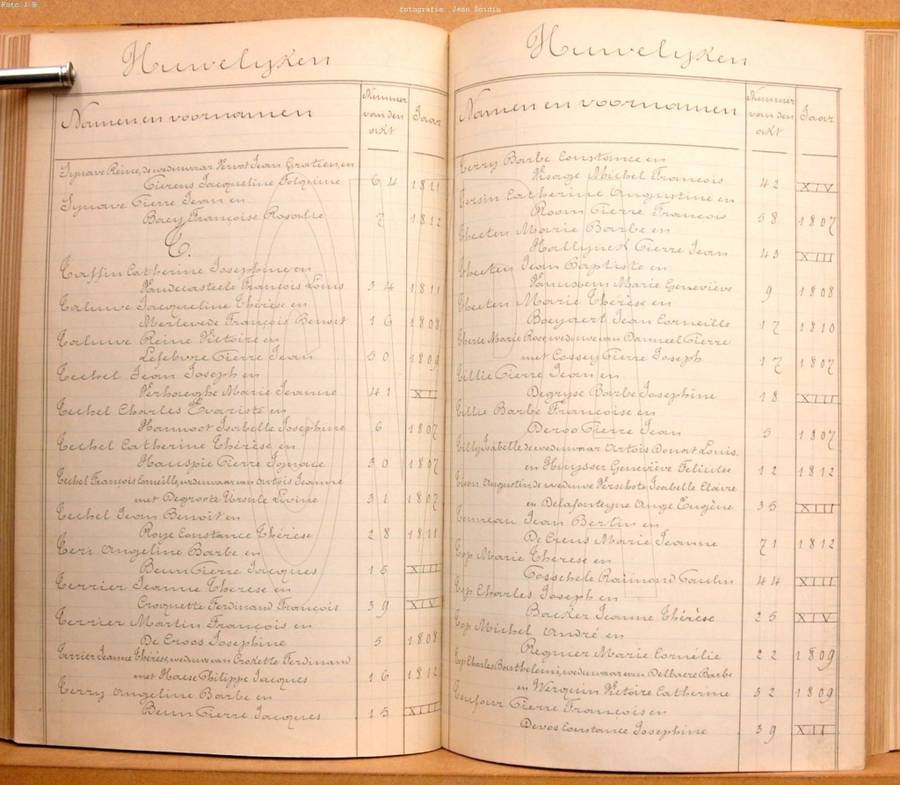 Foto J B
fotografie: Jean
Huwelyken
Namen en voornamen
Nummer van den akt
Jaar
Synave Reine, de weduwaar Vervot Jean Gratien, en
Jacqueline 64 1811
Synave Pierre Jean en
Baey Françoise Rosalie 7 1812
T.
Taffin Catherine Josephine en
Vandecasteele François Louis 34 1811
Taluwe Jacqueline Thérèse en
Merlevede François Benoit 16 1808
Taluwe Reine Victoire en
Lefebvre Pierre Jean 50 1809
Techel Jean Joseph en
Verhaeghe Marie Jeanne 41 XII
Techel Charles Evariste en
Hannoot Isabelle Josephine 6 1807
Techel Catherine Thérèse en
Hauspie Pierre Ignace 30 1807
Techel François Corneille, weduwaar van Artois Jeanne
met Degroote Ursule Livine 31 1807
Techel Jean Benoit en
Roye Constance Thérèse 28 1811
Angeline Barbe en
Beun Pierre Jacques 15 XIII
Terrier Jeanne Therese en
Croquette Ferdinand François 39 XIV
Terrier Martin François en
De Croos Josephine 5 1808
Terrier Jeanne Thérèse, weduwe van Crokette Ferdinand
met Haese Philippe Jacques 16 1812
Terry Angeline Barbe en
Beun Pierre Jacques 15 XIII
Huwelyken
Namen en voornamen
Nummer van den akt
Jaar
Terry Barbe Constance en
Visage Michel François 42 XIV
Tersin Catherine Augustine en
Room Pierre François 58 1807
Theeten Marie Barbe en
Hallynck Pierre Jean 43 XIII
Theeten Jean Baptiste en
Vanussem Marie Geneviève 9 1808
Theeten Marie Thérèse en
Boeyaert Jean Corneille 17 1810
Marie Rose, weduwe van Danneel Pierre
met Cossey Pierre Joseph 17 1807
Tillie Pierre Jean en
Degryse Barbe Josephine 18 XIII
Tillie Barbe Françoise en
Deroo Pierre Jean 5 1807
Tilly Isabelle de weduwaar Artois Donat Louis
en Huysser Geneviève Felicité 12 1812
Augustin de weduwe Isabelle Claire
en Delafonteyne Ange Eugène 35 XIII
Jean Bertin en
De Creus Marie Jeanne 71 1812
Top Marie Therese en
Tosschele Raimond Paulin 44 XIII
Top Charles Joseph en
Backer Jeanne Thérèse 25 XIV
Top Michel André en
Regnier Marie Cornélie 22 1809
Top Charles Barthelemi, weduwaar van Barbe
en Werquin Victoire Catherine 32 1809
Toufour Pierre François en
Devos Constance Josephine 39 XII